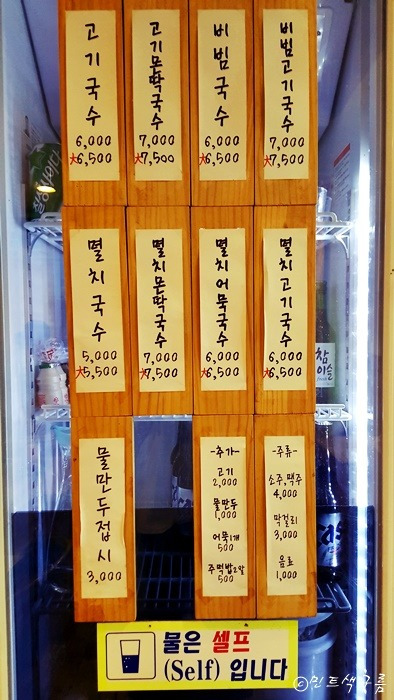 고기국수
6,000
大6,500
고기몬딱국수
7,000
大7,500
비빔국수
6,000
大6,500
비빔고기국수
7,000
大7,500
멸치국수
5,000
大5,500
멸치몬딱국수
7,000
大7,500
멸치어묵국수
6,000
大6,500
멸치고기국수
6,000
大6,500
물만두접시
3,000
-추가-
고기
2,000
물만두
1,000
어묵1개
500
주먹밥2알
500
-주류-
소주,맥주
4,000
막걸리
3,000
음료
1,000
칠성사이다
참
이슬
물은 셀프
(Self) 입니다
©민트색구름